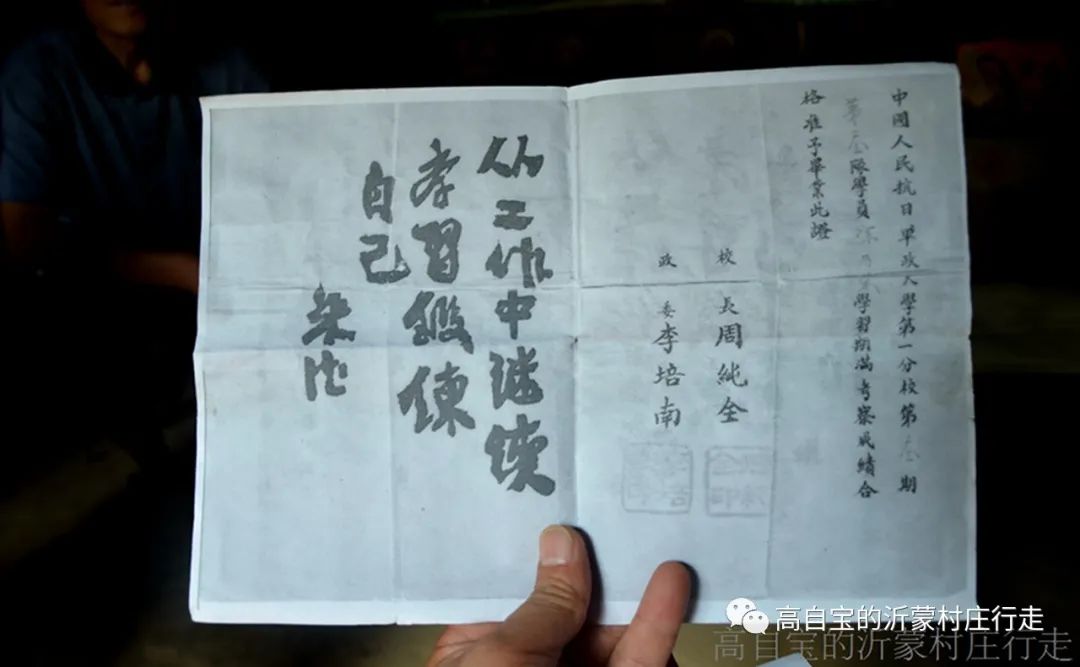 中國人民抗日軍政大學第一分校第叁期
第叁隊學員 學習期滿考察成績合
格准予畢業此證
校長周純全
政委李培南
从工作中继续
孝習鍛鍊
自己
朱德
高自宝的沂蒙村庄行走
高自宝的沂蒙村庄行走